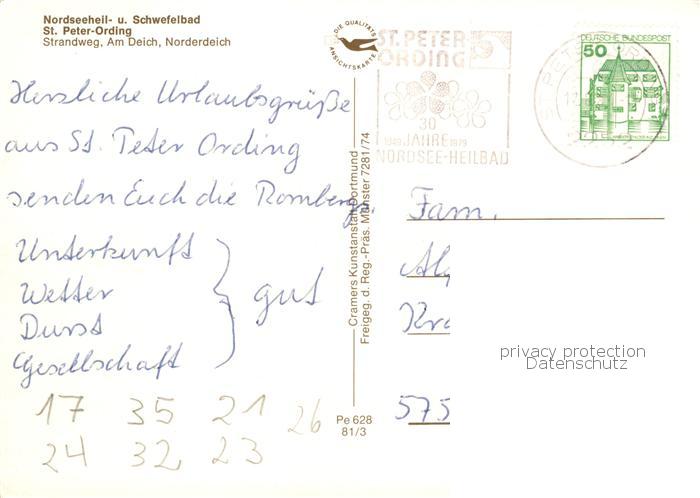 Nordseeheil- u. Schwefelbad
St. Peter-Ording
Strandweg, Am Deich, Norderdeich
DIE QUALITÄTS
ANSICHTSKARTE
ST. PETER
ORDING
30
1949 JAHRE 1979
NORDSEE-HEILBAD
DEUTSCHE BUNDESPOST
50
Herzliche Urlaubsgrüße
aus St. Peter Ording
senden Euch die Rombergs.
Unterkunft
Wetter
Durst
Gesellschaft
gut
17 35 21 26
24 32 23
Cramers Kunstanstalt Dortmund
Freigeg. d. Reg.-Präs. Münster 7281/74
Pe 628
81/3
Fam.
575
privacy protection
Datenschutz